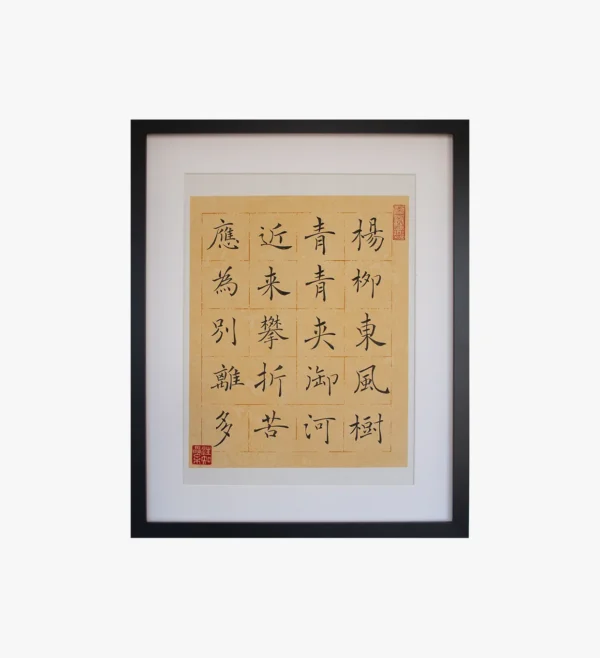 楊柳東風樹
青青夹御河
近来攀折苦
應為别離多